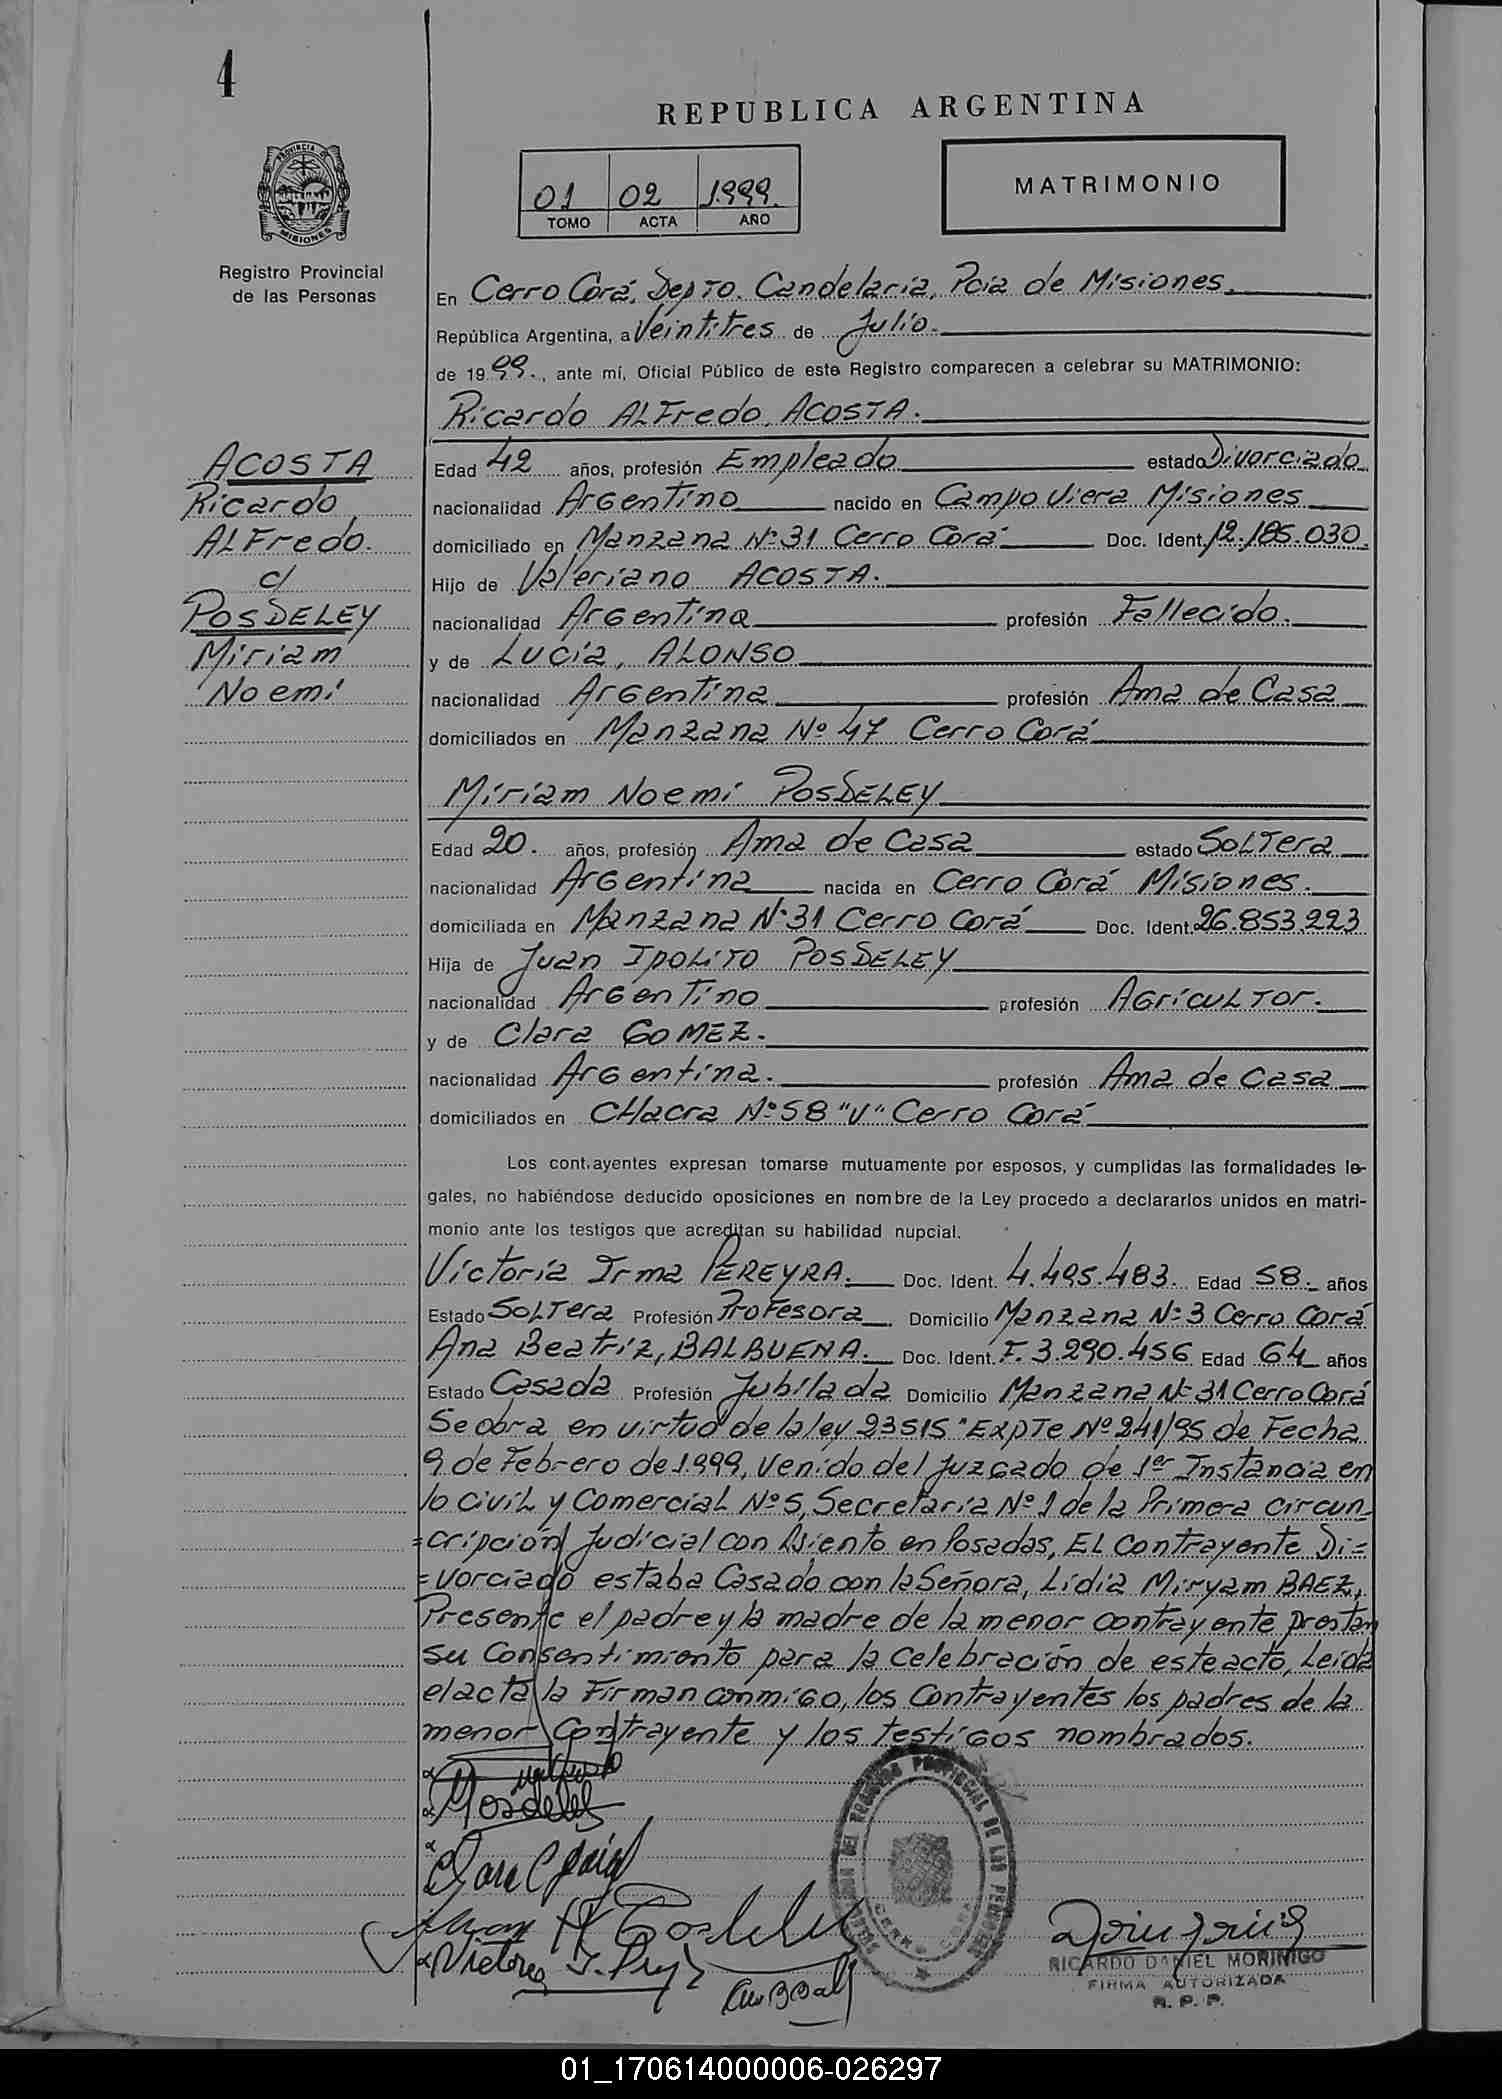 4
REPUBLICA ARGENTINA
01 02 1.999.
TOMO ACTA AÑO
MATRIMONIO
PROVINCIA DE
MISIONES
Registro Provincial
de las Personas
En Cerro Corá, Depto. Candelaria, Pcia de Misiones.
República Argentina, a Veintitres de Julio.
de 19 99., ante mí, Oficial Público de este Registro comparecen a celebrar su MATRIMONIO:
Ricardo ALFredo, ACOSTA.
ACOSTA
Ricardo,
ALFredo.
c/
POSDELEY
Miriam
Noemi
Edad 42 años, profesión Empleado estado Divorciado
nacionalidad Argentino nacido en Campo Viera Misiones
domiciliado en Manzana Nº 31 Cerro Corá Doc. Ident. 12.185.030.
Hijo de Valeriano ACOSTA.
nacionalidad Argentina profesión Fallecido.
y de Lucia, ALONSO
nacionalidad Argentina profesión Ama de Casa
domiciliados en Manzana Nº 47 Cerro Corá
Miriam Noemi POSDELEY
Edad 20. años, profesión Ama de Casa estado Soltera
nacionalidad Argentina nacida en Cerro Corá Misiones.
domiciliada en Manzana Nº 31 Cerro Corá Doc. Ident. 26.853.223
Hija de Juan Ipolito POSDELEY
nacionalidad Argentino profesión Agricultor.
y de Clara GOMEZ.
nacionalidad Argentina. profesión Ama de Casa
domiciliados en CHacra Nº 58 "V" Cerro Corá
Los cont.ayentes expresan tomarse mutuamente por esposos, y cumplidas las formalidades le-
gales, no habiéndose deducido oposiciones en nombre de la Ley procedo a declararlos unidos en matri-
monio ante los testigos que acreditan su habilidad nupcial.
Victoria Irma PEREYRA. Doc. Ident. 4.495.483. Edad 58. años
Estado Soltera Profesión Profesora Domicilio Manzana Nº 3 Cerro Corá
Ana Beatriz, BALBUENA. Doc. Ident. F. 3.290.456 Edad 64 años
Estado Casada Profesión Jubilada Domicilio Manzana Nº 31 Cerro Corá
Se obra en virtud de la ley 23515 "ExpTe Nº 241/95 de Fecha
9 de Febrero de 1.999, venido del Juzgado de 1er Instancia en
lo Civil y Comercial Nº 5, Secretaria Nº 1 de la Primera circun_
=cripción Judicial con Asiento en Posadas, EL Contrayente Di=
=vorciado estaba Casado con la Señora, Lidia Miryam BAEZ,
Presente el padre y la madre de la menor contrayente prestan
su Consentimiento para la Celebración de este acto, Leida
el acta la Firman conmigo, los Contrayentes los padres de la
menor Contrayente y los testigos nombrados.
RICARDO DANIEL MORINIGO
FIRMA AUTORIZADA
R. P. P.
01_170614000006-026297